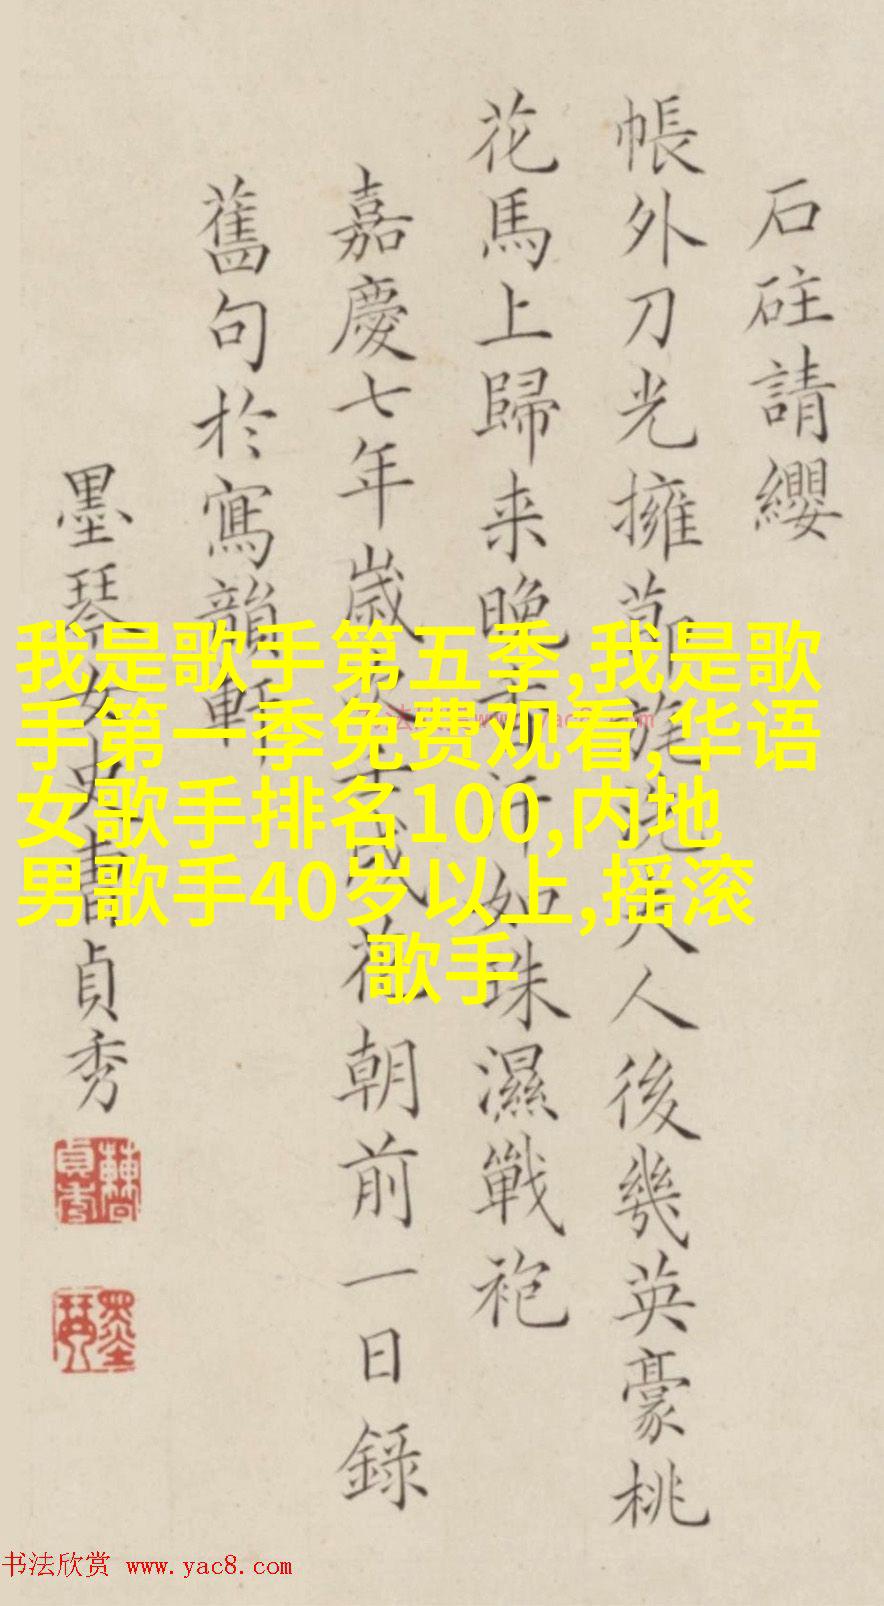 石砫請纓
帳外刀光擁節旄 夫人後幾英豪桃
花馬上歸来晚 汗如珠濕戰袍
嘉慶七年歲 花朝前一日録
舊句於寫韻軒
墨琴女史曹貞秀
我是歌手第五季,我是歌
手第一季免费观看,华语
女歌手排名100,内地
男歌手40岁以上,摇滚
歌手
书法欣赏 www.yac8.com